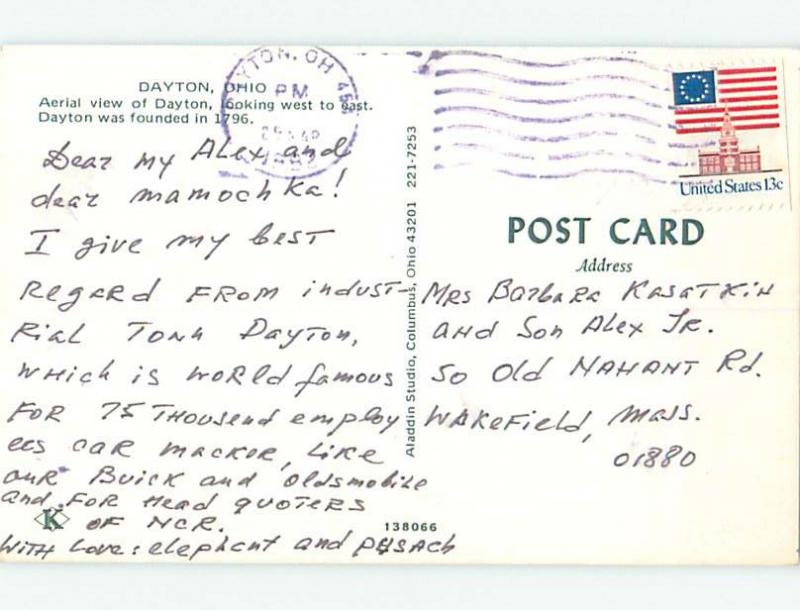 DAYTON, OHIO
Aerial view of Dayton, looking west to east.
Dayton was founded in 1796.
YTON, OH 45
PM
United States 13c
Dear my Alex and
dear mamochka!
I give my best
Regard FROM indust-
Rial Tonn Dayton,
which is world famous
FOR 75 THousend employ
ees car macker, Like
our Buick and oldsmobile
and FOR Head quoters
OF NCR.
With Love: elephent and
K
138066
Aladdin Studio, Columbus, Ohio 43201 221-7253
POST CARD
Address
Mrs Barbara Kasatkin
and Son Alex Jr.
50 Old NAHANT Rd.
WAKefield, Mass.
01880